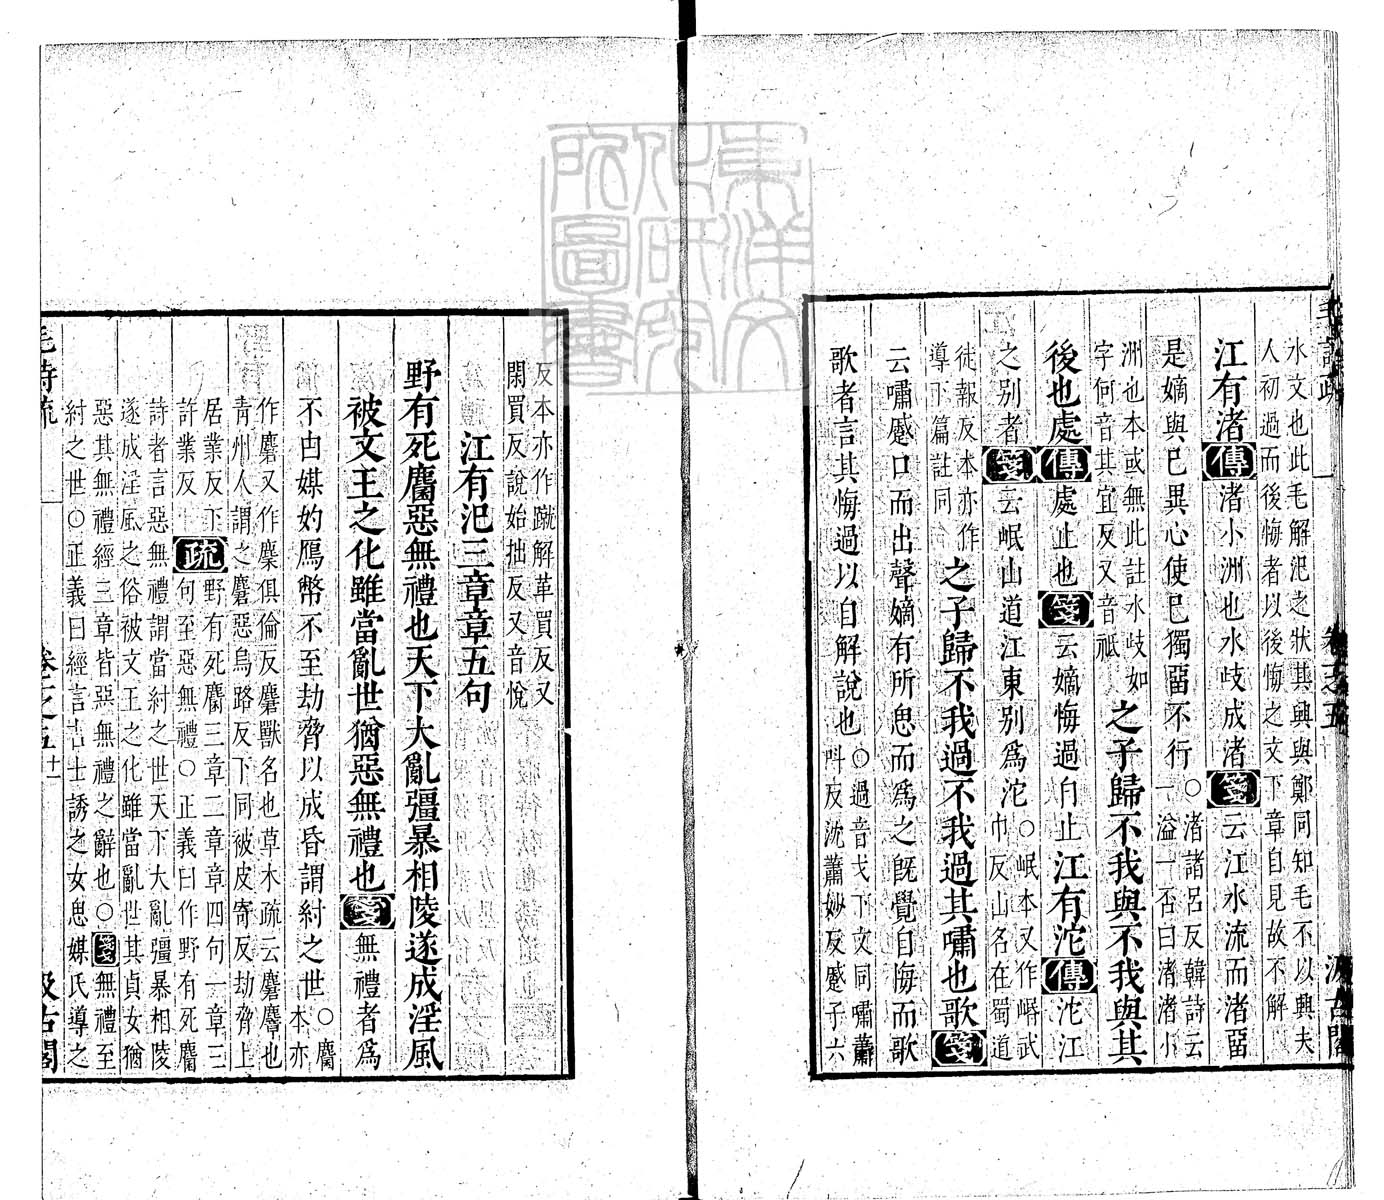 水文也此毛解汜之狀其興與鄭同知毛不以興夫
人初過而後悔者以後悔之文下章自見故不解
江有渚傳渚小洲也水歧成渚箋云江水流而渚留
是嫡與己異心使己獨留不行○渚諸呂反韓詩云
一溢一否曰渚渚小
洲也本或無此註水歧如
字何音其宜反又音祇
之子歸不我與不我與其
後也處傳處止也箋云嫡悔過自止江有沱傳沱江
之别者箋云岷山道江東别為沱○岷本又作㟭武
巾反山名在蜀道
徒報反本亦作
導下篇註同
之子歸不我過不我過其嘯也歌箋
云嘯蹙口而出聲嫡有所思而為之旣覺自悔而歌
歌者言其悔過以自解說也○過音戈下文同嘯蕭
呌反沈蕭妙反蹙子六
反本亦作蹴解革買反又
閑買反說始拙反又音悅
江有汜三章章五句
野有死麕惡無禮也天下大亂彊暴相陵遂成淫風
被文王之化雖當亂世猶惡無禮也箋無禮者為
不由媒妁鴈幣不至劫脅以成昏謂紂之世○麕
本亦
作麏又作麇俱倫反麏獸名也草木疏云麏麞也
青州人謂之麏惡烏路反下同被皮寄反劫脅上
居業反下
許業反
疏野有死麕三章二章章四句一章三
句至惡無禮○正義曰作野有死麕
詩者言惡無禮謂當紂之世天下大亂彊暴相陵
遂成淫風之俗被文王之化雖當亂世其貞女猶
惡其無禮經三章皆惡無禮之辭也○箋無禮至
紂之世○正義曰經言吉士誘之女思媒氏導之
毛詩疏
卷一之五
十一
汲古閣